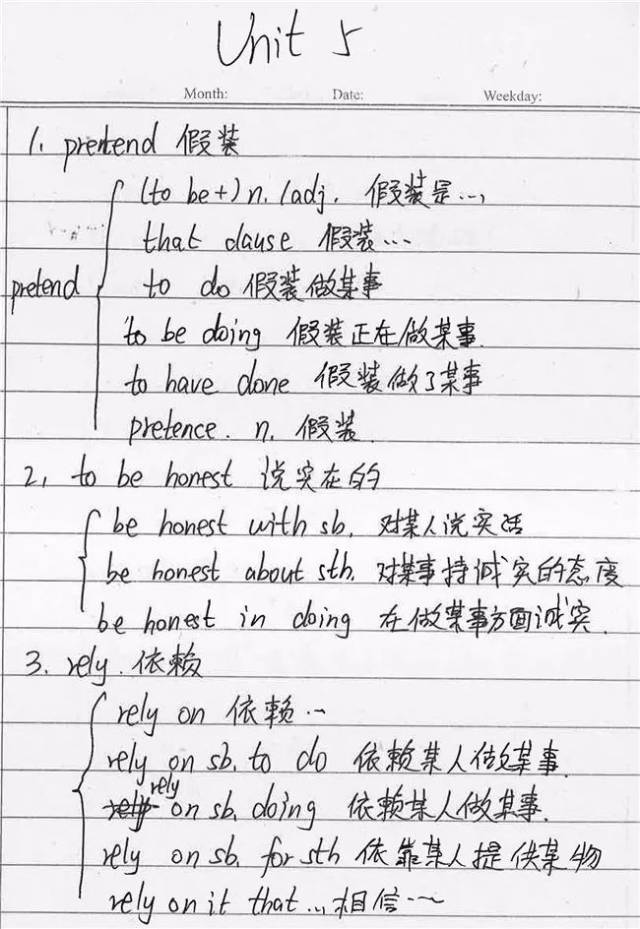 Unit 5
Month: Date: Weekday:
1. pretend 假装
(to be+) n. /adj. 假装是...
that clause 假装...
pretend to do 假装做某事
to be doing 假装正在做某事.
to have done 假装做了某事
pretence. n. 假装.
2. to be honest 说实在的
be honest with sb. 对某人说实话
be honest about sth. 对某事持诚实的态度
be honest in doing 在做某事方面诚实.
3. rely. 依赖
rely on 依赖...
rely on sb. to do 依赖某人做某事.
rely on sb. doing 依赖某人做某事.
rely on sb. for sth 依靠某人提供某物
rely on it that... 相信...